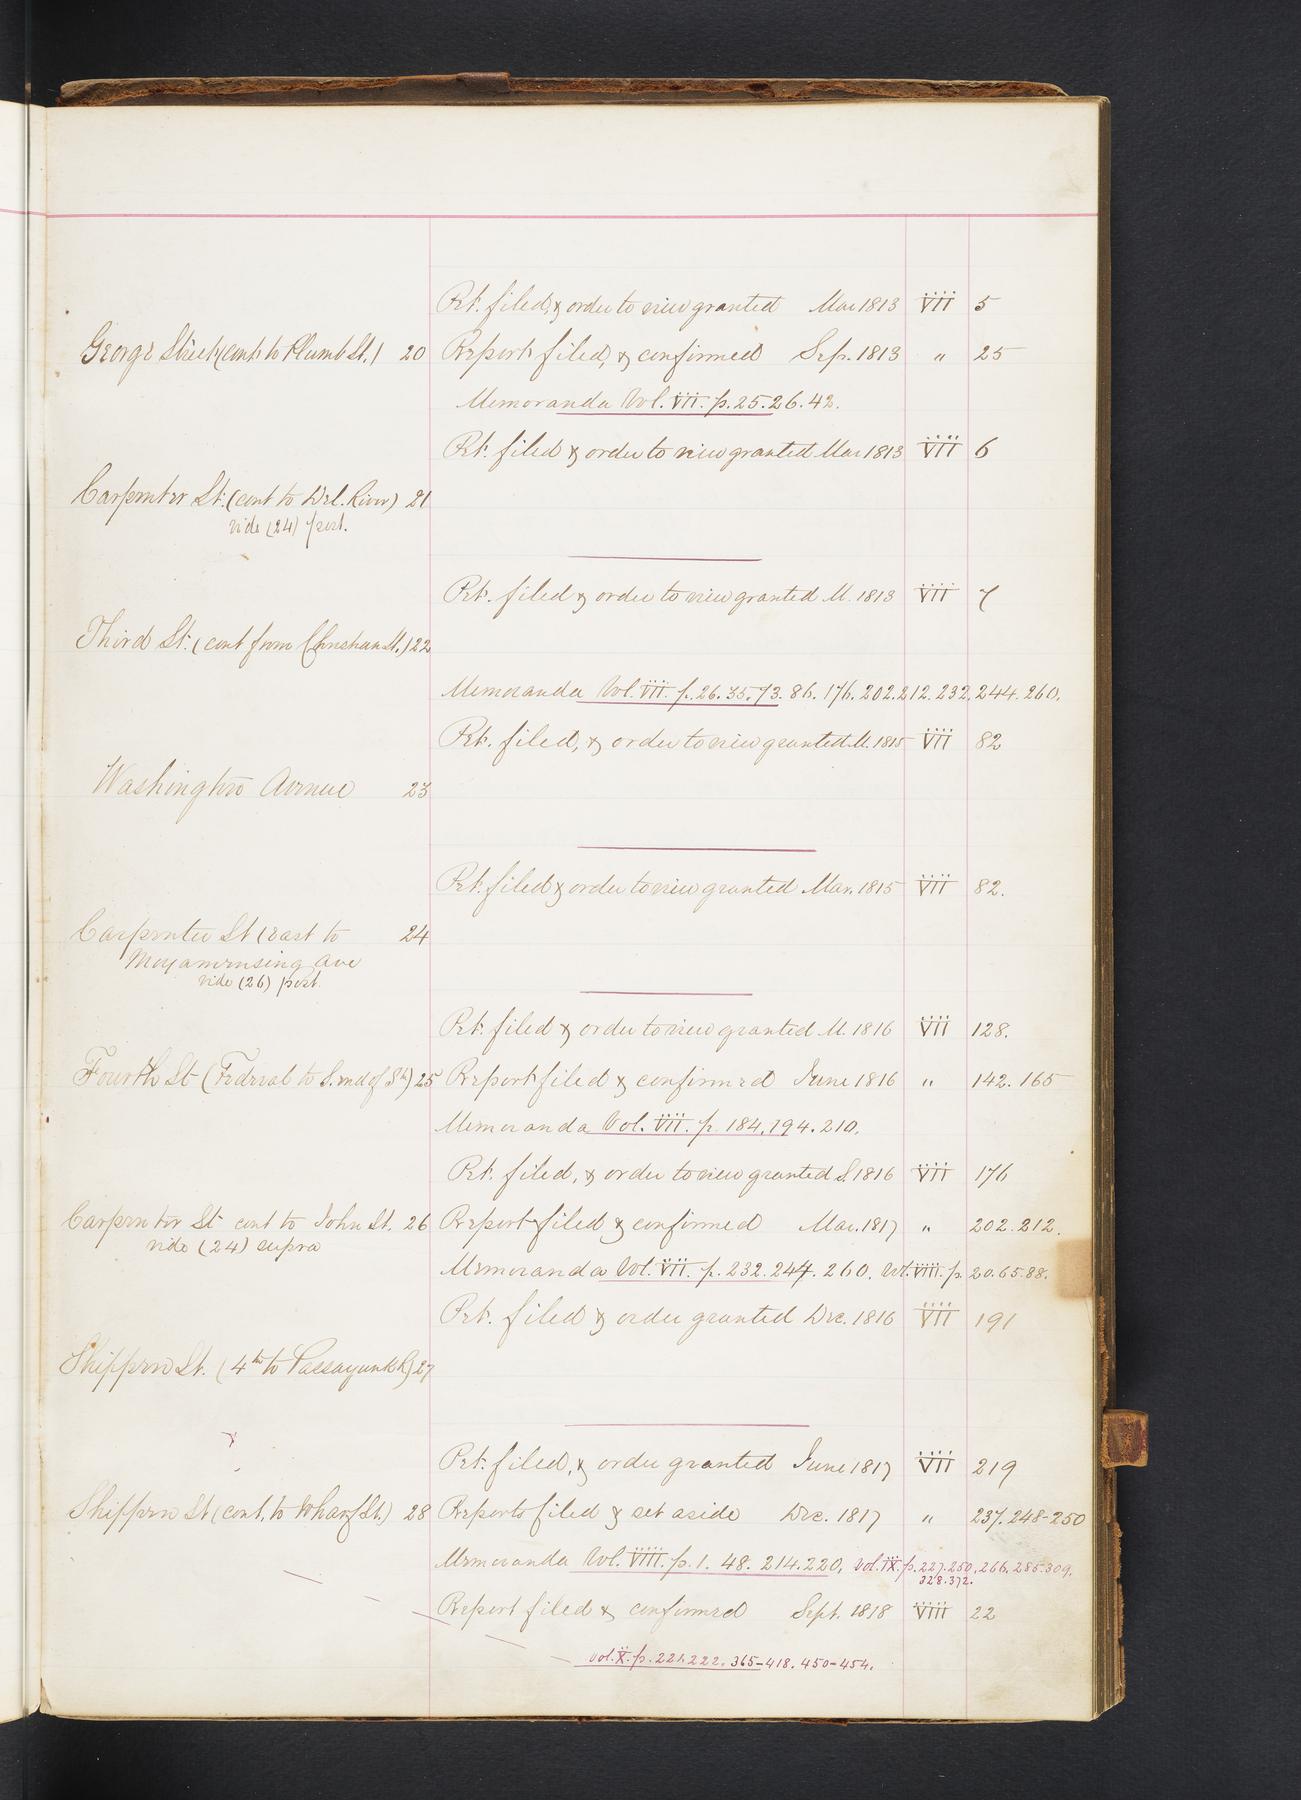 Pet. filed, & order to view granted Mar 1813 VII 5
George Street (cont to Plumb St.) 20 Report filed, & confirmed Sep. 1813 " 25
Memoranda Vol. VII. p. 25. 26. 42.
Pet. filed & order to view granted Mar 1813 VII 6
Carpenter St. (cont to Del. River) 21
vide (24) post.
Pet. filed & order to view granted M. 1813 VII 7
Third St. (cont from Christian St.) 22
Memoranda Vol. VII. p. 26. 35. 73. 86. 176. 202. 212. 232. 244. 260.
Pet. filed, & order to view granted M. 1815 VII 82
Washington Avenue 23
Pet. filed & order to view granted Mar. 1815 VII 82.
Carpenter St (east to 24
Moyamensing Ave
vide (26) post.
Pet. filed & order to view granted M. 1816 VII 128.
Fourth St (Federal to S. end of St) 25 Report filed & confirmed June 1816 " 142. 165
Memoranda Vol. VII. p. 184. 194. 210.
Pet. filed, & order to view granted S. 1816 VII 176
Carpenter St cont to John St. 26 Report filed & confirmed Mar. 1817 " 202. 212.
vide (24) supra
Memoranda Vol. VII. p. 232. 244. 260. Vol. VIII. p. 20. 65. 88.
Pet. filed & order granted Dec. 1816 VII 191
Shippen St. (4th to Passayunk R) 27
Pet. filed, & order granted June 1817 VII 219
Shippen St (cont. to Wharf St.) 28 Reports filed & set aside Dec. 1817 " 237. 248-250
Memoranda Vol. VIII. p. 1. 48. 214. 220, Vol. IX. p. 227. 250. 266. 285. 309.
328. 372.
Report filed & confirmed Sept. 1818 VIII 22
Vol. X. p. 221. 222. 365-418. 450-454.